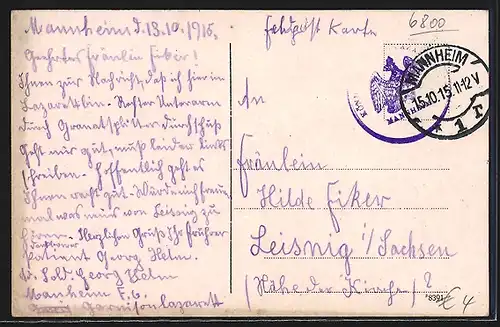 Mannheim d. 13.10.1915.
Geehrtes Fräulein Fiker!
Ihnen zur Nachricht, daß ich hier in
Lazarett bin. Rechter Unterarm
durch Granatsplitter durchschuß
Geht mir gut, muß leider links
schreiben. Hoffentlich geht es
Ihnen recht gut. Würde mich freuen
mal was neues von Leisnig zu
hören. Herzlichen Gruß Ihr früherer
Patient Georg Helm.
Sold. Georg Helm
Mannheim F. 6.
Garnisonlazarett
Feldpost Karte
6800
MANNHEIM
15.10.15. 11-12 V
* 1 r
KÖN
MANNH
An
Fräulein
Hilde Fiker
Leisnig i/Sachsen
(Nähe der Kirche)?
*8391
€ 4